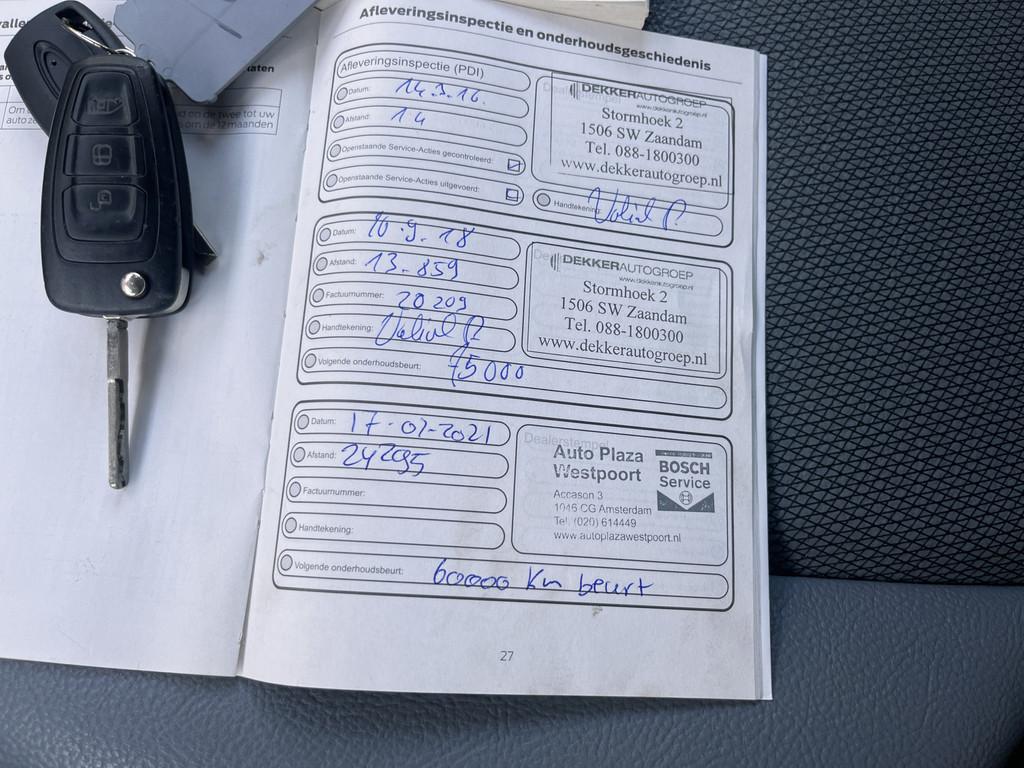 Afleveringsinspectie en onderhoudsgeschiedenis
Afleveringsinspectie (PDI)
Datum: 14.3.16.
Afstand: 14
Openstaande Service-Acties gecontroleerd:
Openstaande Service-Acties uitgevoerd:
DEKKERAUTOGROEP
www.dekkerautogroep.nl
Stormhoek 2
1506 SW Zaandam
Tel. 088-1800300
www.dekkerautogroep.nl
Handtekening:
Datum: 10.9.18
Afstand: 13.859
Factuurnummer: 20209
Handtekening:
Volgende onderhoudsbeurt: 45000
DEKKERAUTOGROEP
www.dekkerautogroep.nl
Stormhoek 2
1506 SW Zaandam
Tel. 088-1800300
www.dekkerautogroep.nl
Datum: 17-07-2021
Afstand: 24295
Factuurnummer:
Handtekening:
Volgende onderhoudsbeurt: 60000 km beurt
Dealerstempel
Auto Plaza
Westpoort
BOSCH
Service
Accason 3
1046 CG Amsterdam
Tel. (020) 614449
www.autoplazawestpoort.nl
27
en de twee tot uw
om de 12 maanden